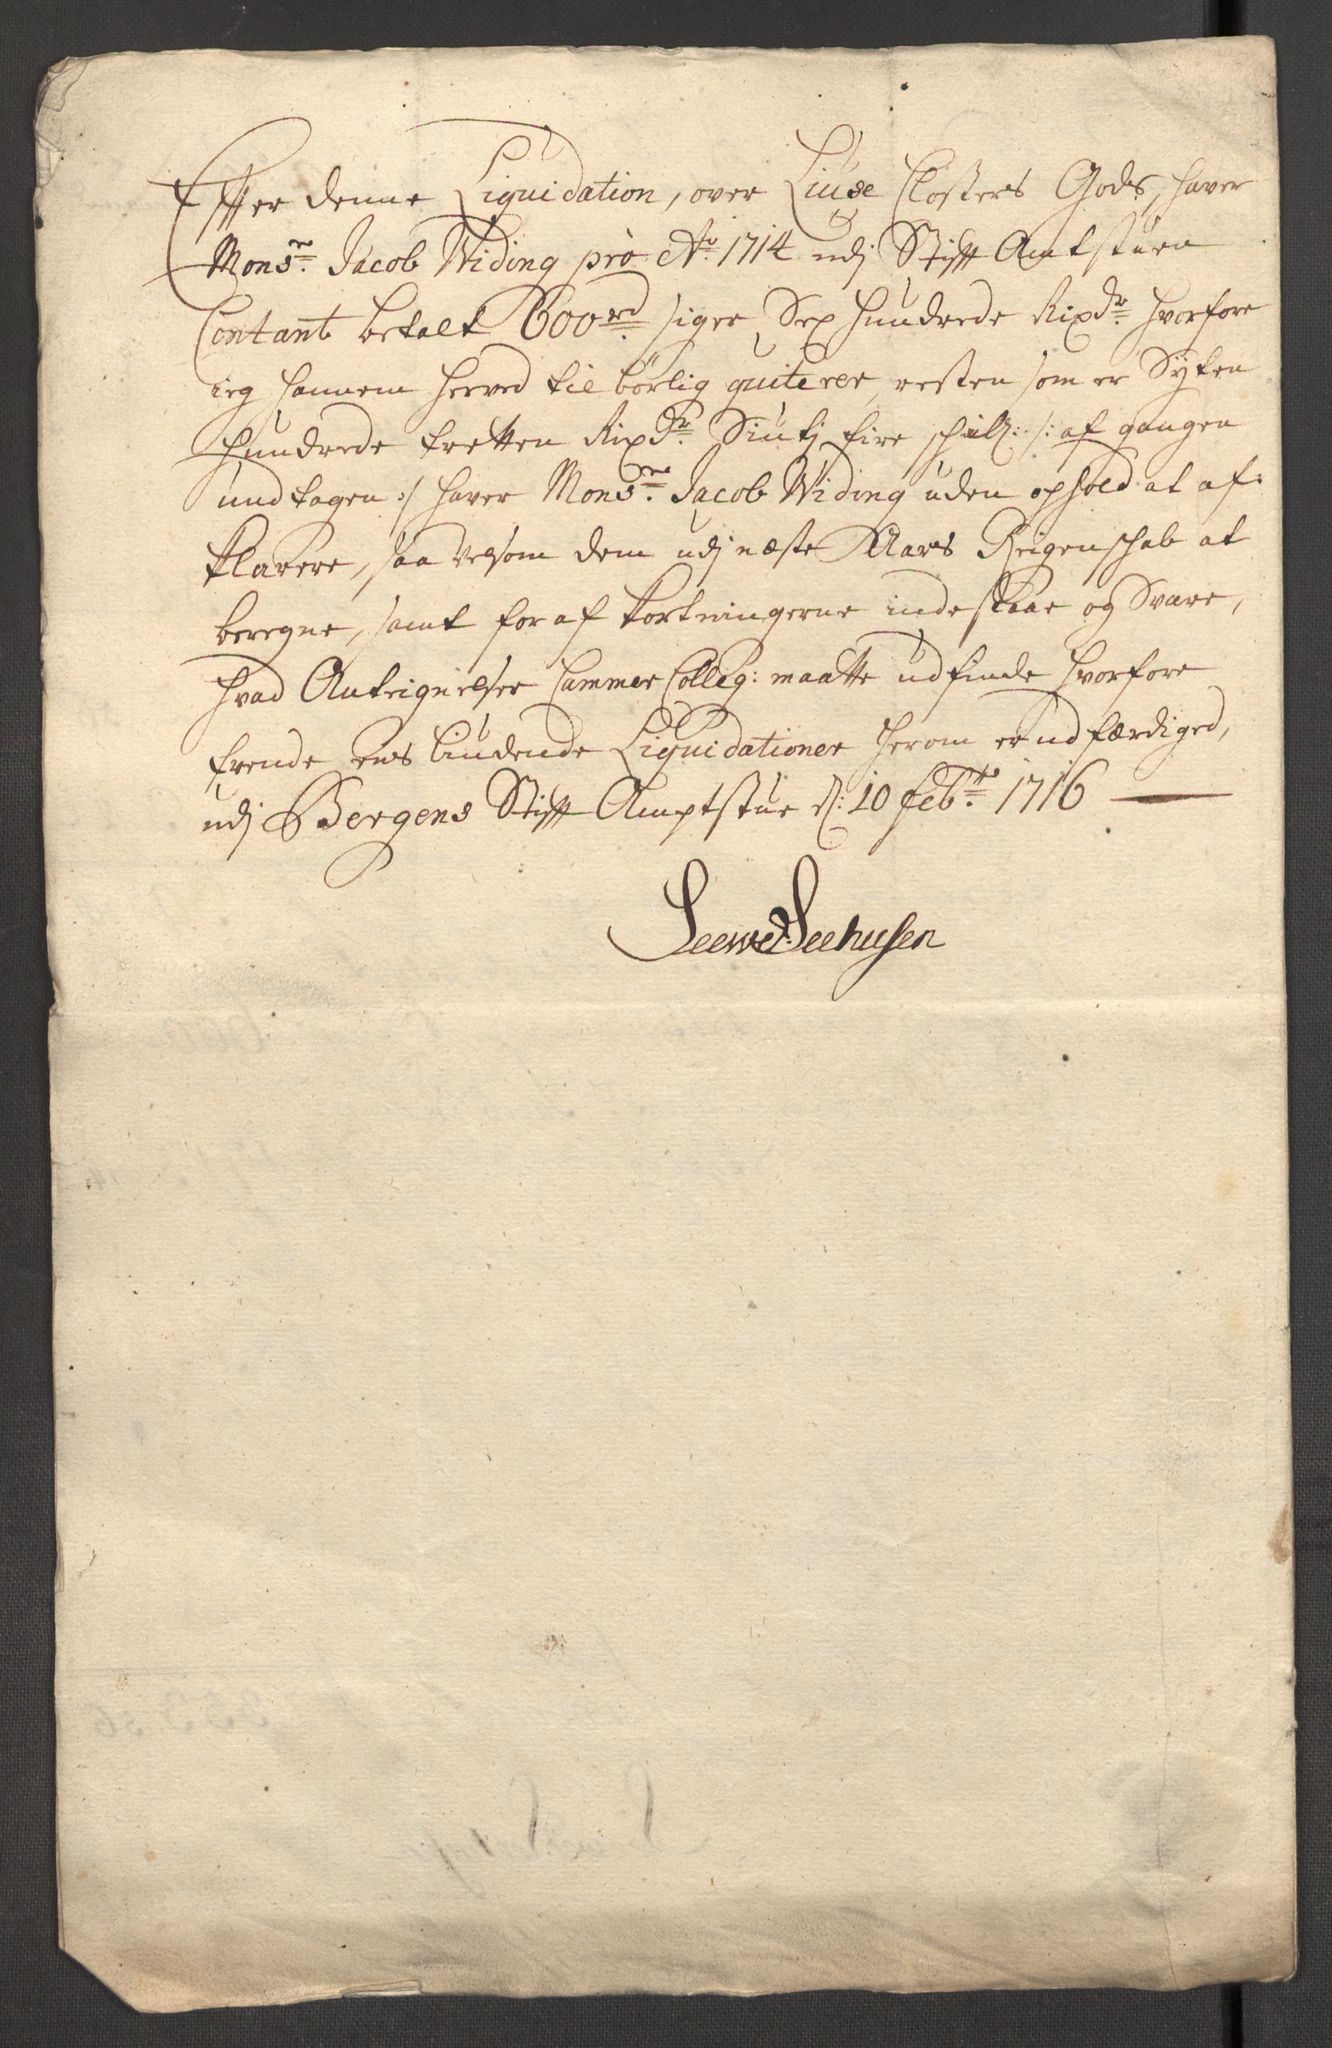 Effter denne Liquidation, over Liuse Closters Gods, haver
Monsr. Jacob Widing pro Ao. 1714 udj Stifft Amtstuen
Contant betalt 600rd siger Sex hundrede Rixdr. hvorfore
ieg hannem herved tilbørlig quiterer, resten som er Syten
hundrede tretten Rixdr. Siutj fire schill: /: afgangen
undtagen :/ haver Monsr. Jacob Widing uden ophold at af:
klarere, saa velsom dem udj næste Aars Reigenschab at
beregne, samt for afkortningerne indestaae og Svare,
hvad Antegnelser Cammer Colleg: maatte udfinde hvorfore
trende eens liudende Liquidationer herom er udfærdiged,
udj Bergens Stifft Amptstue d: 10 Febr. 1716
Seewer Seehusen